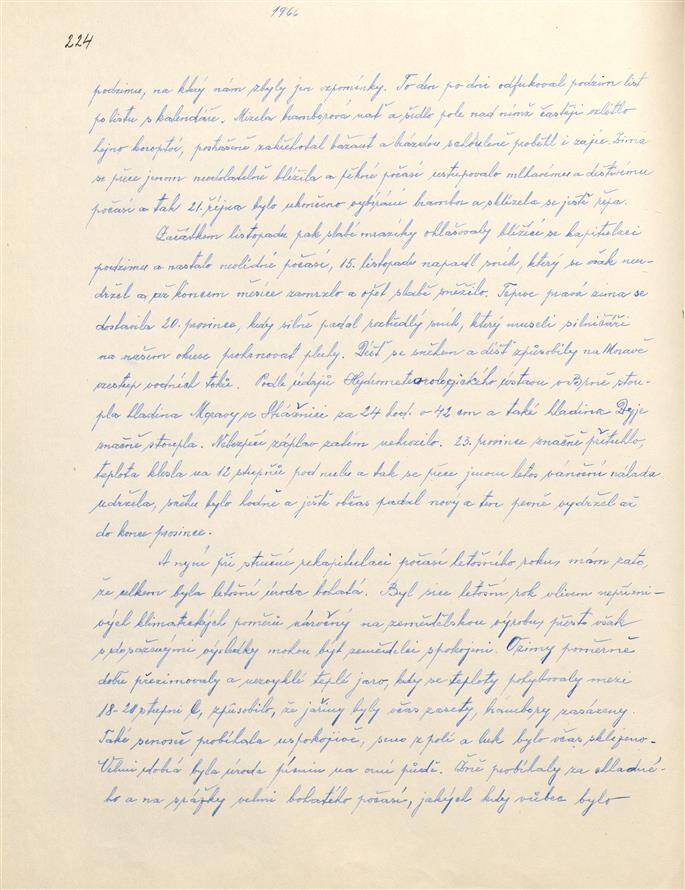 1966
224
podzimu, na který nám zbyly jen vzpomínky. To den po dni odfukoval podzim list
po listu s kalendáře. Mizela bramborová nať a řídlo pole nad nímž častěji vzlétlo
hejno koroptví, postrašeně zakřehotal bažant a brázdou schouleně poběhl i zajíc. Zima
se přece jenom neodolatelně blížila a pěkné počasí ustupovalo mlhavému a deštivému
počasí a tak 21. října bylo ukončeno vybírání brambor a sklízela se ještě řepa.
Začátkem listopadu pak slabé mrazíky ohlašovaly blížící se kapitulaci
podzimu a nastalo nevlídné počasí, 15. listopadu napadl sníh, který se však neu-
držel a až koncem měsíce zamrzlo a opět slabě sněžilo. Teprve pravá zima se
dostavila 20. prosince, kdy silně padal rozbředlý sníh, který museli silničáři
na našem okrese prohrnovat pluhy. Déšť se sněhem a déšť způsobily na Moravě
vzestup vodních toků. Podle údajů Hydrometeorologického ústavu v Brně stou-
pla hladina Moravy ve Strážnici za 24 hod. o 42 cm a také hladina Dyje
značně stoupla. Nebezpečí záplav zatím nehrozilo. 23. prosince značně přituhlo,
teplota klesla na 12 stupňů pod nulu a tak se přece jenom letos vánoční nálada
udržela, sněhu bylo hodně a ještě občas padal nový a ten pevně vydržel až
do konce prosince.
A nyní při stručné rekapitulaci počasí letošního roku, mám zato,
že celkem byla letošní úroda bohatá. Byl sice letošní rok vlivem nepřízni-
vých klimatických poměrů náročný na zemědělskou výrobu, přesto však
s dosaženými výsledky mohou být zemědělci spokojeni. Ozimy poměrně
dobře přezimovaly a nezvykle teplé jaro, kdy se teploty pohybovaly meze
18-20 stupni C, způsobilo, že jařiny byly včas zasety, brambory zasázeny.
Také senoseč probíhala uspokojivě, seno z polí a luk bylo včas sklizeno.
Velmi dobrá byla úroda pícnin na orné půdě. Žně probíhaly za chladné-
ho a na srážky velmi bohatého počasí, jakých kdy vůbec bylo